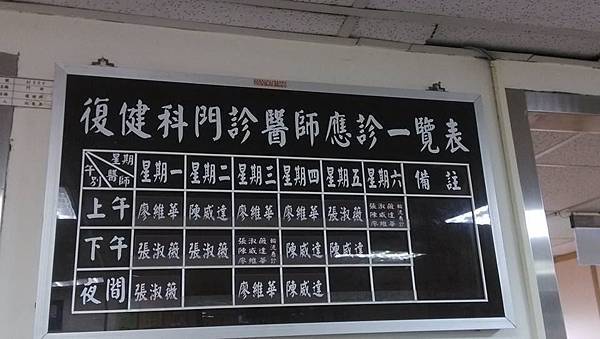 復健科門診醫師應診一覽表
星期 醫師 午別 星期一 星期二 星期三 星期四 星期五 星期六 備註
上午 廖維華 陳威達 廖維華 廖維華 張淑薇 張淑薇 陳威達 廖維華 輪流應診
下午 張淑薇 張淑薇 張淑薇 陳威達 廖維華 輪流應診 陳威達 陳威達
夜間 張淑薇 廖維華 陳威達